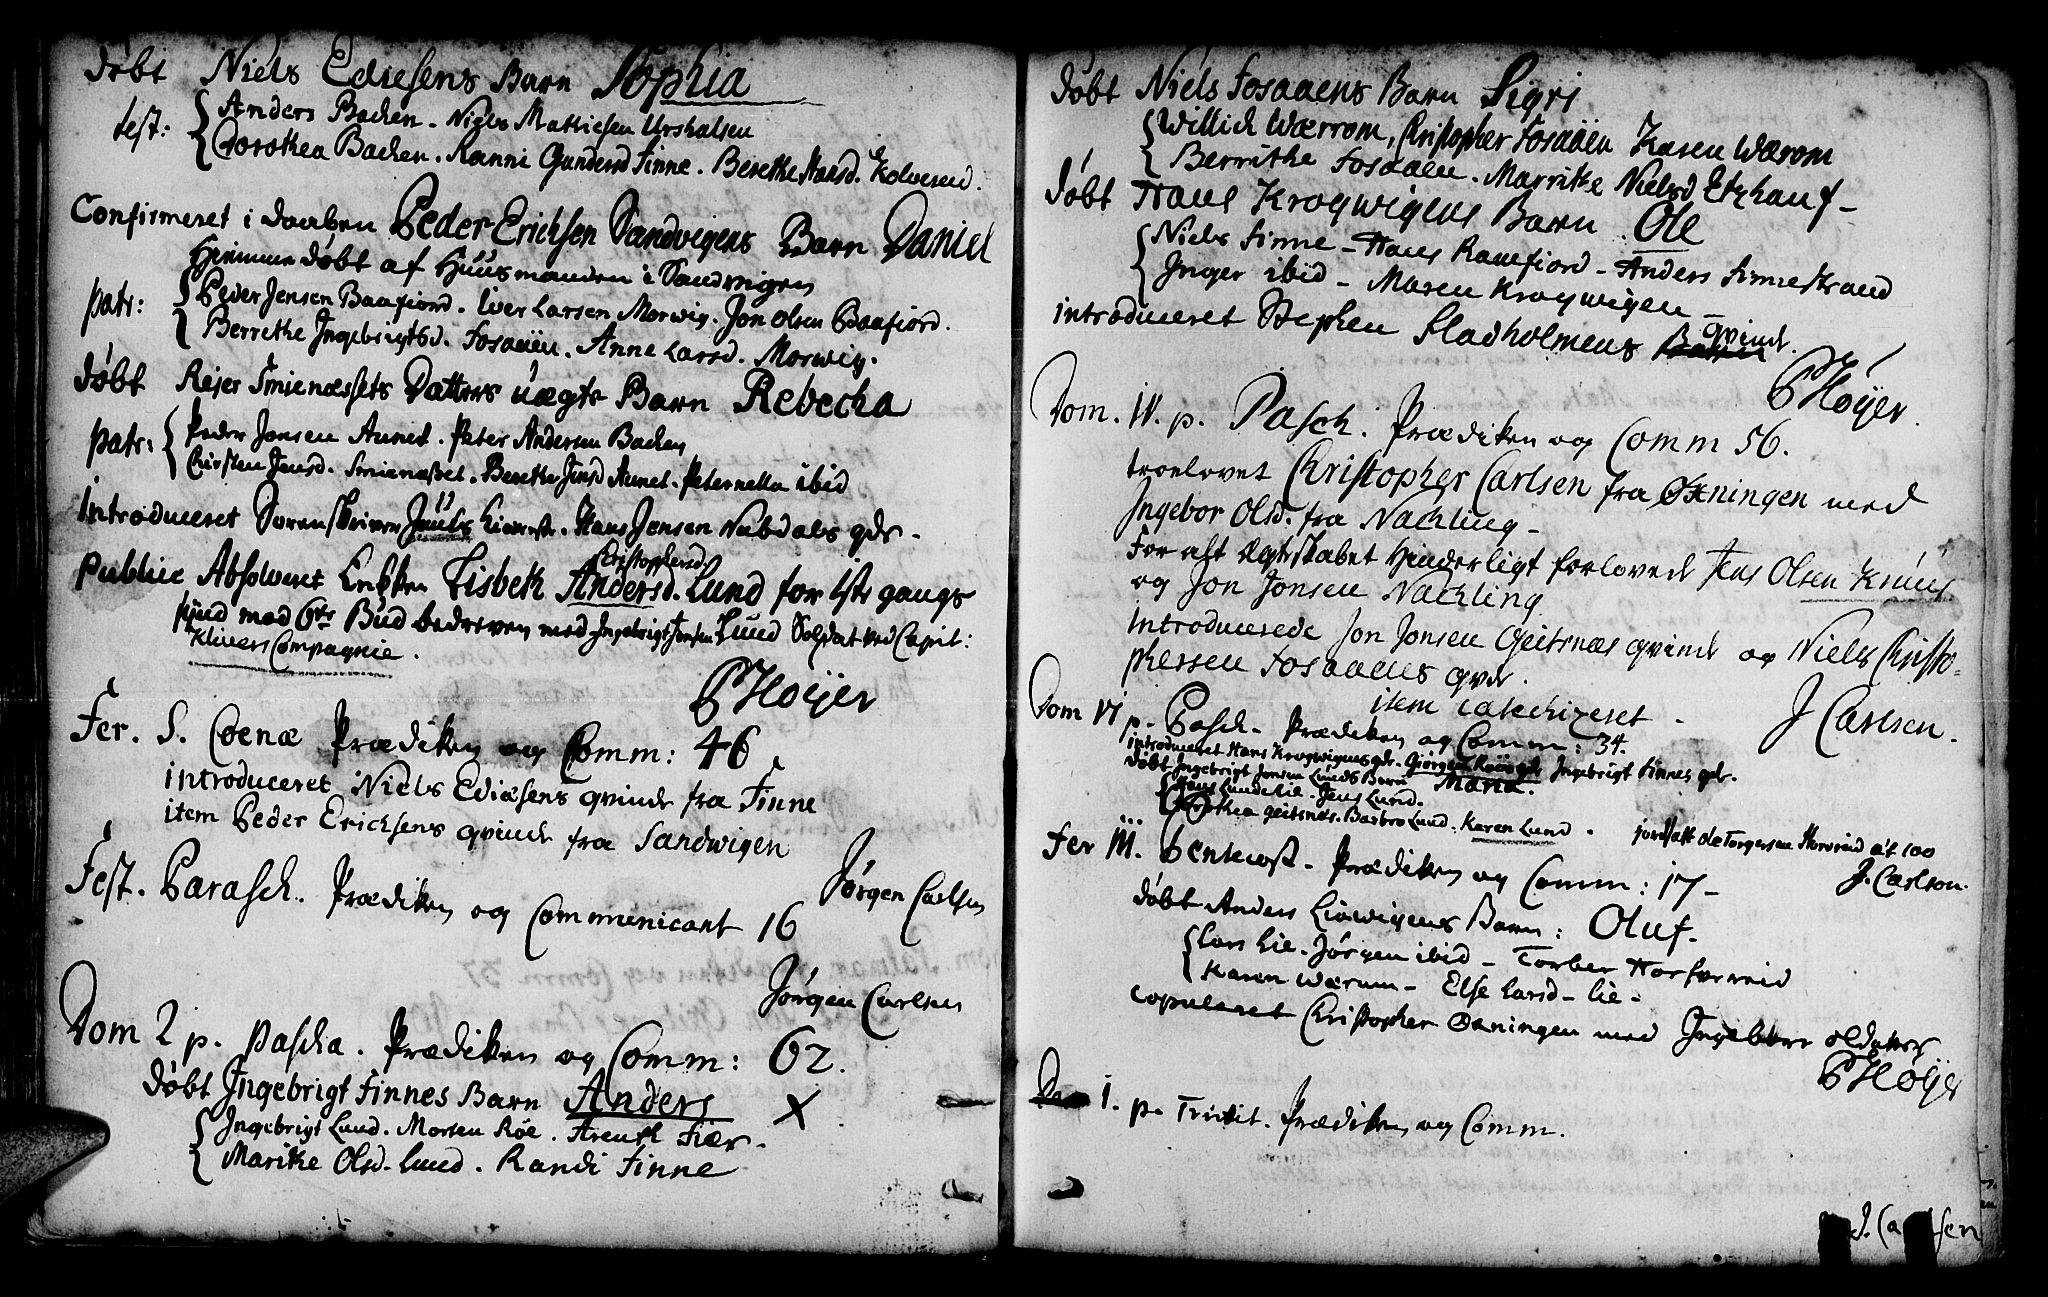 døbt Niels Ediesens Barn Sophia
test: Anders Bachen - Niels Mathiesen
Dorothea Bachen. Ranni Gundersd Finne. Berethe Hansd. Kolvereid.
Confirmeret i daaben Peder Erichsen Sandvigens Barn Daniel
Hiemme døbt af Huusmanden i Sandvigen
patr: Peder Jensen Baafiord. Iver Larsen Morwig. Jon Olsen Baafiord.
Berrethe Ingebrigtsd. Fosaaen. Anne Larsd. Morwig.
døbt Rejer Smienæssets Datters uægte Barn Rebecha
patr: Peder Jonsen Aunet. Peter Andersen Bachen
Kirsten Jensd. Smienæsset. Berethe Jensd Aunet. Peternella ibid
Introduceret Sorenskriver Juuls. Hans Jensen Nubdals qde.
Christophersd
Public Absolveret Enken Lisbeth Andersd. Lund for 1ste gangs
synd mod 6te Bud bedreven med Ingebrigt Jonsen Lund Soldat ved Capit:
Klüvers Compagnie.
PHöyer
Fer. S. Coenæ Prædiken og Comm: 46
introduceret Niels Ediæsens qvinde fra Finne
item Peder Erichsens qvinde fra Sandwigen
Jørgen Carlsen
Fest. Parasch. Prædiken og Communicant 16
Jørgen Carlsen
Dom 2 p. Pascha. Prædiken og Comm: 62.
døbt Ingebrigt Finnes Barn Anders X
Ingebrigt Lund. Morten Röe. Arenth Fiær.
Marithe Olsd. Lund. Randi Finne
døbt Niels Fosaaens Barn Sigri
Willich Wærrom, Christopher Fosaaen Karen Wærom
Berrithe Fosaaen. Marrithe Nielsd
døbt Hans Krogwigens Barn Ole
Niels Finne - Hans Ranefiord - Anders Finnestrand
Inger ibid - Maren Krogwigen -
introduceret Stephen Sladholmens qvinde.
PHöyer.
Dom. IV. p. Pasch. Prædiken og Comm 56.
troelovet Christopher Carlsen fra Øxningen med
Ingebor Olsd. fra Nachling -
For alt Ægteskabet Hinderligt forlovede Jens Olsen
og Jon Jonsen Nachling
Introducerede Jon Jonsen Geitsnæs qvinde og Niels Christo-
phersen Fosaaens qvde.
J Carlsen.
item catechizeret -
Dom VI p. Pasch. Prædiken og Comm: 34.
introduceret Hans Krogwigens qde. Giørgen Röes qde Ingebrigt Finnes qde.
døbt Ingebrigt Jonsen Lunds Barn Maria.
Hans Lundelie. Jens Lund.
Dorothea Geitsnæs. Barbro Lund. Karen Lund.
jordfatt Ole Torgersen Horvereid æt 100
J. Carlsen.
Fer III. Pentecost - Prædiken og Comm: 17 -
døbt Anders Liewigens Barn: Oluf.
Lars Lie. Jørgen ibid - Torber Horfverreid
Karen Wærum - Else Larsd - Lie -
copuleret Christopher Øxningen med Ingebor Olsdatter
PHöyer
Dom 1. p. Trinit. Prædiken og Comm.
J. Carlsen